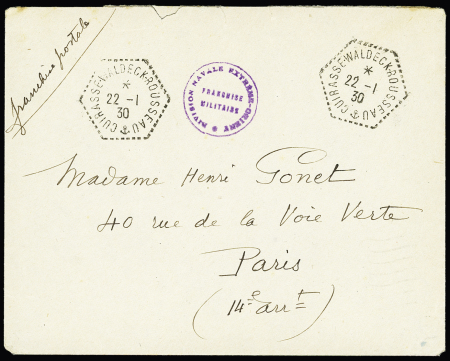 franchise postale
CUIRASSE-WALDECK-ROUSSEAU
*
22 -1
30
DIVISION NAVALE EXTRÊME-ORIENT
FRANCHISE
MILITAIRE
CUIRASSE-WALDECK-ROUSSEAU
*
22 -1
30
Madame Henri Gonet
40 rue de la Voie Verte
Paris
(14e arrt)